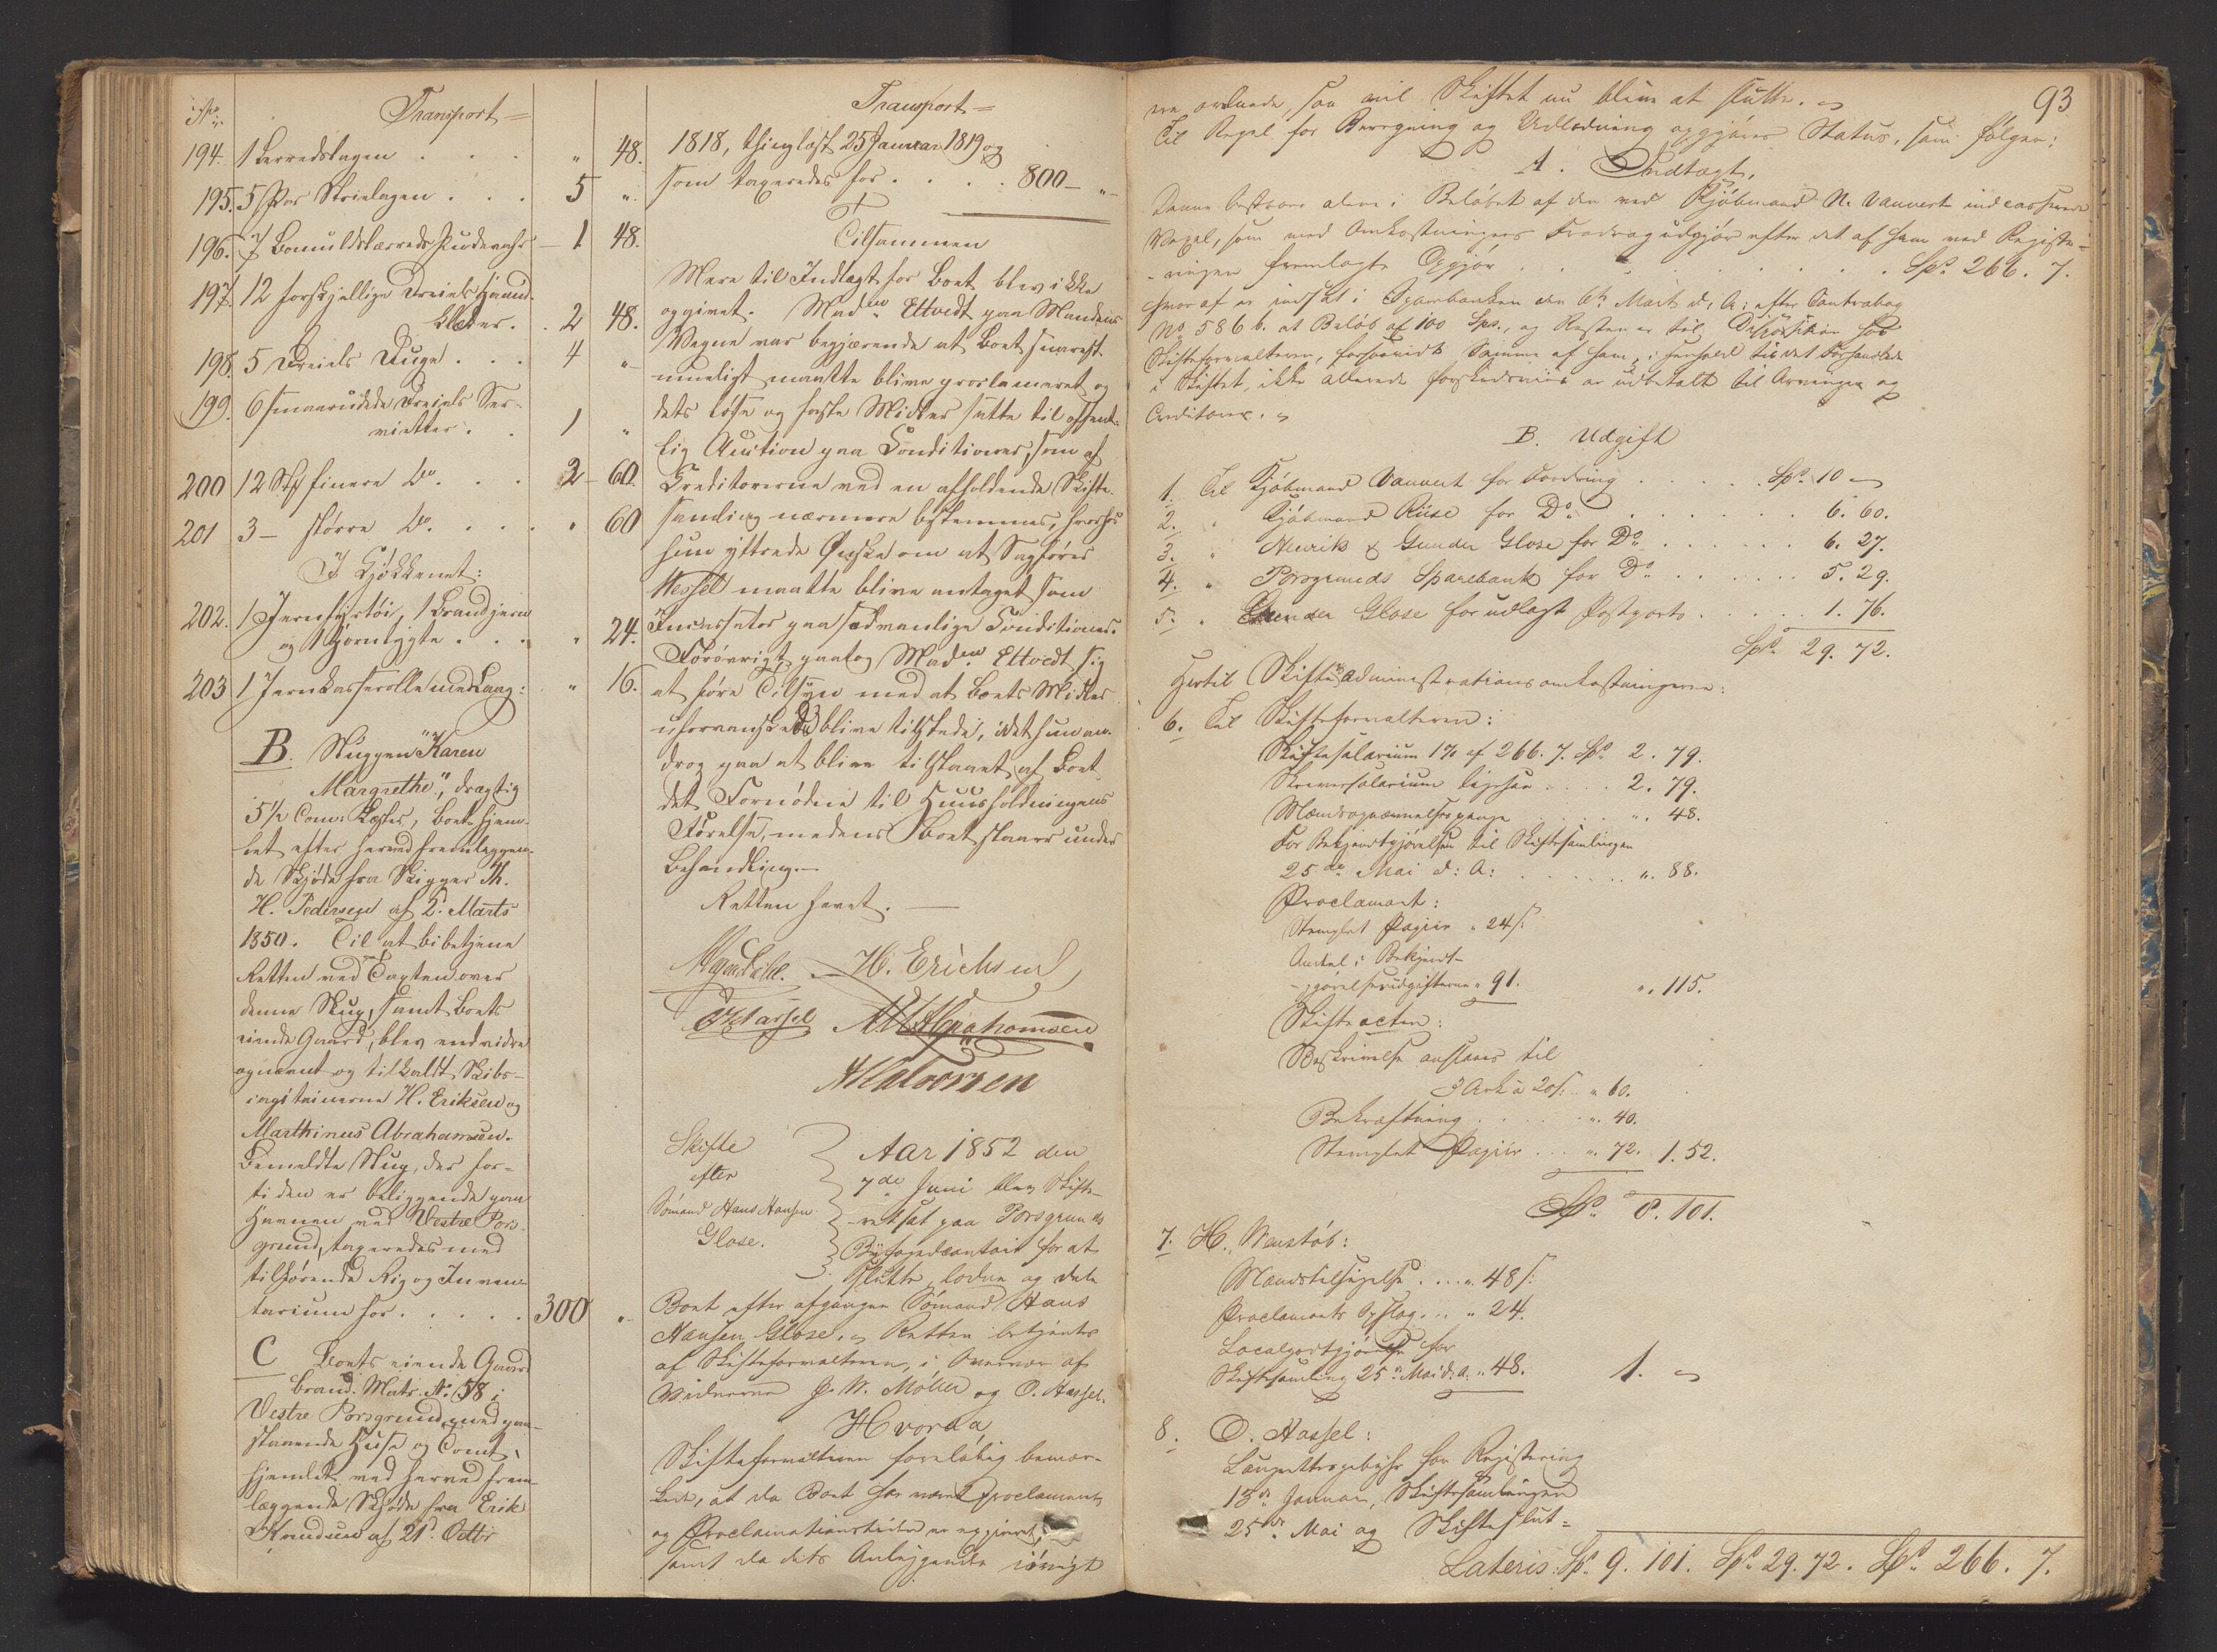 No. Transport =
194. 1 Lerredslagen . . . " 48.
195. 5 Par Strielagen . . . 5 "
196. 7 Bomuldslærreds Pudevahr 1 48.
197. 12 forskjellige Dreiels Haand-
klæder. . 2 48.
198. 5 Dreiels Duge . . . 4 "
199. 6 smaarudede Dreiels Ser-
vietter . . 1 "
200 12 Stk finere Do. . . 2 60.
201 3 — større Do. . . . " 60
I Kjøkkenet:
202. 1 Jernfyrtøi, 1 Brandjern
og 1 Hjørnlygte . . . " 24.
203 1 Jernkasserolle med Laag: " 16.
B. Skuggen "Karen
Margrethe", drægtig
5½ Com: Læster, Boet hjem-
let efter herved fremlæggen-
de Skjøde fra Skipper Th.
H. Pedersen af 2. Marts
1850. Til at bibetjene
Retten ved Taxten over
denne Skug, samt Boets
eiende Gaard, blev endvidre
opnævnt og tilkaldt Skibs-
capitainerne H. Eriksen og
Marthinus Abrahamsen.
Bemeldte Skug, der for-
tiden er beliggende paa
Havnen ved Vestre Pors-
grund, taxeredes med
tilhørende Rig og Inven-
tarium for . . . . . 300 "
C Boets eiende Gaard
Brand. Matr. No. 58 i
Vestre Porsgrund med paa-
staaende Huse og Tomt,
hjemlet ved herved frem-
læggende Skjøde fra Erik
Knudsen af 21d. Octbr
Transport =
1818, thinglæst 25 Januar 1819 og
som taxeredes for . . . . 800 — " —
Tilsammen
Mere til Indtægt for Boet blev ikke
opgivet. Madm. Ettvedt paa Mandens
Vegne var begjærende at Boet snarest-
mueligt maatte blive proclameret og
dets løse og faste Midler satte til offent-
lig Auction paa Conditioner, som af
Creditorerne ved en afholdende Skifte-
samling nærmere bestemmes, hvorhos
hun yttrede Ønske om at Sagfører
Wessel maatte blive antaget som
Incassator paa sædvanlige Conditioner.
Forøvrigt paatog Madm. Ettvedt sig
at føre Tilsyn med at Boets Midler
uforvanskede blive tilstede, idet hun an-
drog paa at blive tilstaaet af Boet
det Fornødne til Huusholdningens
Førelse, medens Boet staaer under
Behandling.—
Retten hævet. —
H. Erichsen
O Hassel M. Abrahamsen
A Halvorsen
Skifte
efter
Sømand Hans Hansen
Glose.
Aar 1852 den
7de Juni blev Skifte-
ret sat paa Porsgrunds
Byfogedcontoir for at
slutte, lodne og dele
Boet efter afgangne Sømand Hans
Hansen Glose. Retten betjentes
af Skifteforvalteren, i Overvær af
Vidnerne J. N. Møller og O. Hassel.
Hvorda
Skifteforvalteren foreløbig bemær-
kede, at da Boet har været proclameret
og Proclamationstiden er expireret,
samt da dets Anliggender iøvrigt
93
ere ordnede, saa vil Skiftet nu blive at slutte.
Til Regel for Beregning og Udlodning opgjøres Status, som følger:
A. Indtægt.
Denne bestaaer alene i Beløbet af den ved Kjøbmand N. Vauvert indcasserede
Vexel, som med Omkostningers Fradrag udgjør efter det af ham ved Registre-
ringen fremlagte Opgjør . . . . . . . Spd. 266. 7.
hvoraf er indsat i Sparebanken den 6te Marts d. A: efter Contrabog
No. 586 b. et Beløb af 100 Spd., og Resten er til Disposition hos
Skifteforvalteren, forsaavidt Samme af ham, i Henhold til det Forhandlede
i Skiftet, ikke allerede forskudsviis er udbetalt til Arvinger og
Creditorer.
B. Udgift
1. Til Kjøbmand Vauvert for Fordring . . . . . Spd. 10 —
2. " Kjøbmand Riise for Do. . . . . . . 6. 60.
3. " Henrik & Gunder Glose for Do. . . . . . . 6. 27.
4. " Porsgrunds Sparebank for Do. . . . . . . 5. 29.
5. " Gunder Glose for udlagt Postporto . . . . . . 1. 76.
Spd. 29. 72.
Hertil Skiftets Administrationsomkostningerne:
6. Til Skifteforvalteren:
Skiftesalarium 1% af 266. 7. Spd. 2. 79.
Skriversalarium ligesaa . . . . 2. 79.
Mændsopnævnelsespenge . . . . ". 48.
For Bekjendtgjørelsen til Skiftesamlingen
25de Mai d: A: . . . . . . ". 88.
Proclamaet:
Stemplet Papiir " 24 s:
Andeel i Bekjendt-
gjørelsesudgifterne " 91. ". 115.
Skifteacten:
Beskrivelse ansla­aes til
3 Ark a 20 s: . " 60.
Bekræftning . . . . . ". 40.
Stemplet Papiir . . . ". 72. 1. 52.
Spd. 8. 101.
7. H. Wenstøb:
Mændstilsigelse . . . . ". 48 s:
Proclamaets Opslag . . . " 24.
Localgodtgjørelse for
Skiftesamling 25de Mai d: a. ". 48. 1. —
8. O. Hassel:
Laugrettesgebyhr for Registering
13de Januar, Skiftesamlingen
25de Mai og Skifteslut-
Lateris: Spd. 9. 101. Spd. 29. 72. Spd. 266. 7.